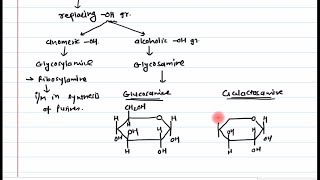 replacing -OH gr.
anomeric -OH.
alcoholic -OH gr.
Glycosylamine
Glycosamine
→ Ribosylamine
I/M in synthesis
of purines.
Glucosamine
Galactosamine
CH₂OH
O
O
H
H
H
H
OH
OH
OH
OH